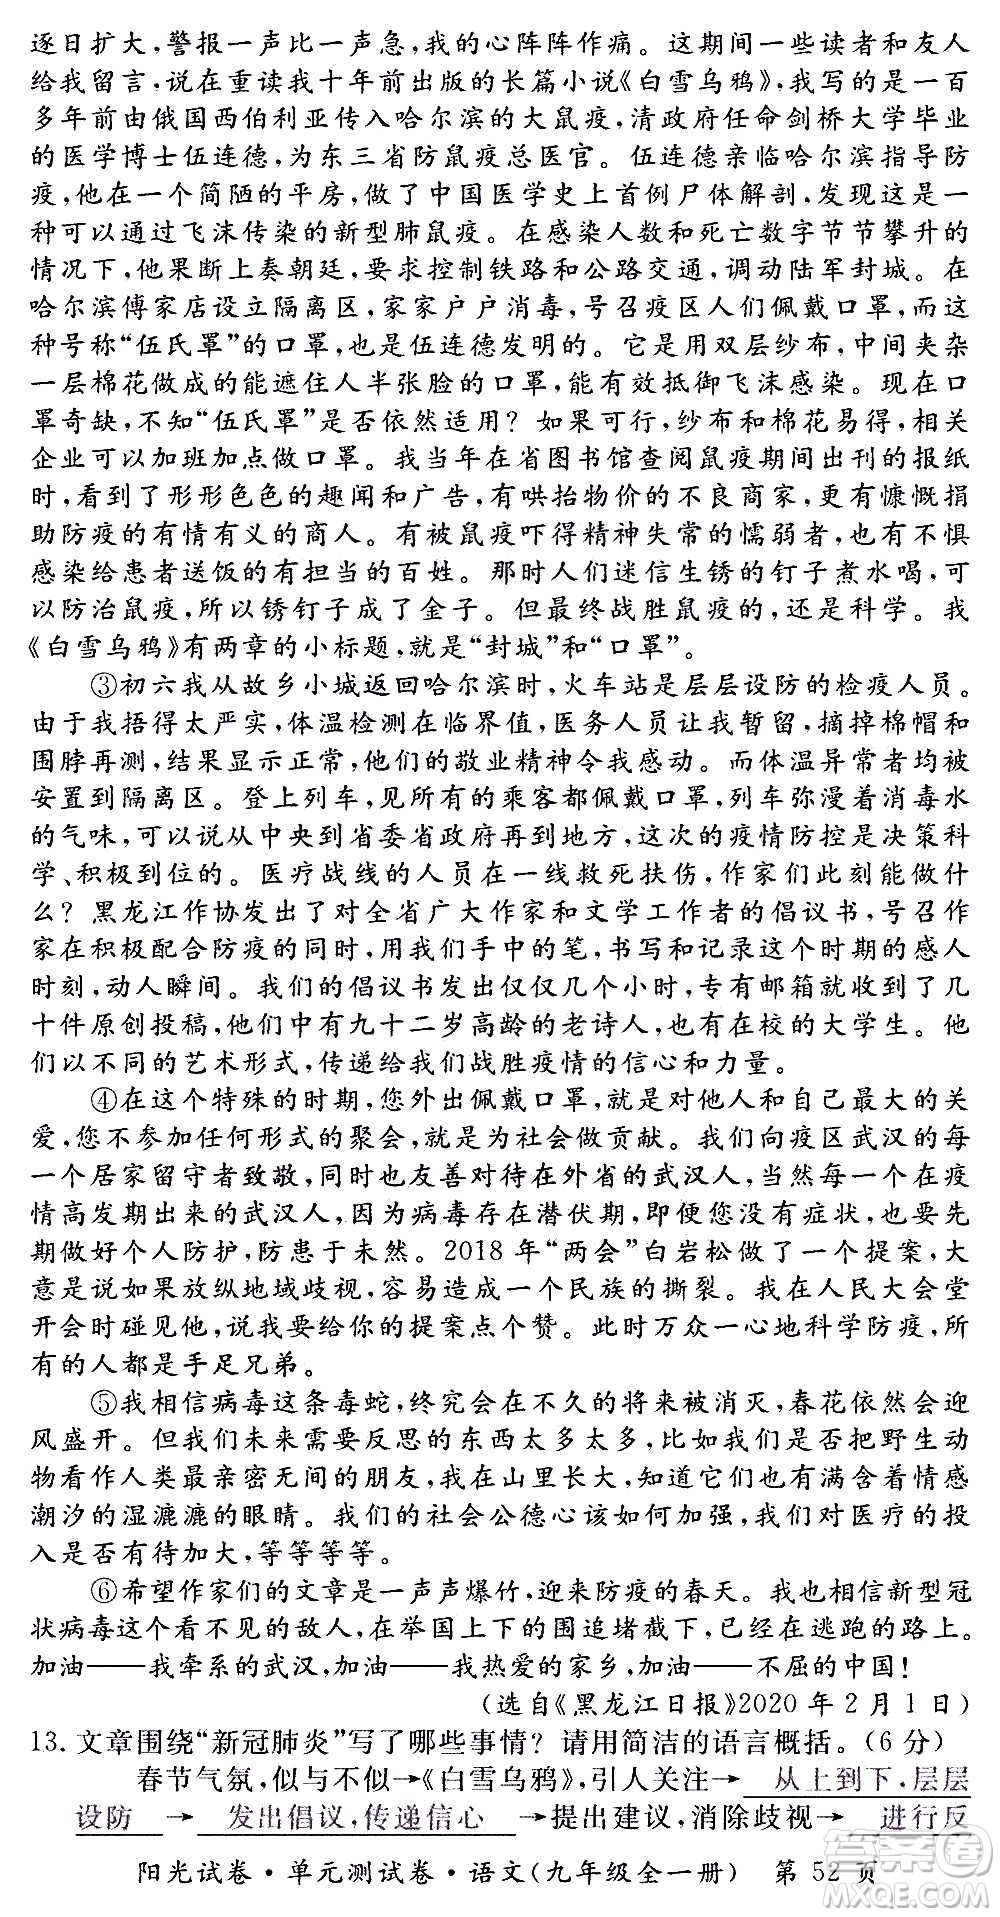 逐日扩大,警报一声比一声急,我的心阵阵作痛。这期间一些读者和友人
给我留言,说在重读我十年前出版的长篇小说《白雪乌鸦》,我写的是一百
多年前由俄国西伯利亚传入哈尔滨的大鼠疫,清政府任命剑桥大学毕业
的医学博士伍连德,为东三省防鼠疫总医官。伍连德亲临哈尔滨指导防
疫,他在一个简陋的平房,做了中国医学史上首例尸体解剖,发现这是一
种可以通过飞沫传染的新型肺鼠疫。在感染人数和死亡数字节节攀升的
情况下,他果断上奏朝廷,要求控制铁路和公路交通,调动陆军封城。在
哈尔滨傅家店设立隔离区,家家户户消毒,号召疫区人们佩戴口罩,而这
种号称“伍氏罩”的口罩,也是伍连德发明的。它是用双层纱布,中间夹杂
一层棉花做成的能遮住人半张脸的口罩,能有效抵御飞沫感染。现在口
罩奇缺,不知“伍氏罩”是否依然适用?如果可行,纱布和棉花易得,相关
企业可以加班加点做口罩。我当年在省图书馆查阅鼠疫期间出刊的报纸
时,看到了形形色色的趣闻和广告,有哄抬物价的不良商家,更有慷慨捐
助防疫的有情有义的商人。有被鼠疫吓得精神失常的懦弱者,也有不惧
感染给患者送饭的有担当的百姓。那时人们迷信生锈的钉子煮水喝,可
以防治鼠疫,所以锈钉子成了金子。但最终战胜鼠疫的,还是科学。我
《白雪乌鸦》有两章的小标题,就是“封城”和“口罩”。
③初六我从故乡小城返回哈尔滨时,火车站是层层设防的检疫人员。
由于我捂得太严实,体温检测在临界值,医务人员让我暂留,摘掉棉帽和
围脖再测,结果显示正常,他们的敬业精神令我感动。而体温异常者均被
安置到隔离区。登上列车,见所有的乘客都佩戴口罩,列车弥漫着消毒水
的气味,可以说从中央到省委省政府再到地方,这次的疫情防控是决策科
学、积极到位的。医疗战线的人员在一线救死扶伤,作家们此刻能做什
么?黑龙江作协发出了对全省广大作家和文学工作者的倡议书,号召作
家在积极配合防疫的同时,用我们手中的笔,书写和记录这个时期的感人
时刻,动人瞬间。我们的倡议书发出仅仅几个小时,专有邮箱就收到了几
十件原创投稿,他们中有九十二岁高龄的老诗人,也有在校的大学生。他
们以不同的艺术形式,传递给我们战胜疫情的信心和力量。
④在这个特殊的时期,您外出佩戴口罩,就是对他人和自己最大的关
爱,您不参加任何形式的聚会,就是为社会做贡献。我们向疫区武汉的每
一个居家留守者致敬,同时也友善对待在外省的武汉人,当然每个在疫
情高发期出来的武汉人,因为病毒存在潜伏期,即便您没有症状,也要先
期做好个人防护,防患于未然。2018年“两会”白岩松做了一个提案,大
意是说如果放纵地域歧视,容易造成一个民族的撕裂。我在人民大会堂
开会时碰见他,说我要给你的提案点个赞。此时万众一心地科学防疫,所
有的人都是手足兄弟。
⑤我相信病毒这条毒蛇,终究会在不久的将来被消灭,春花依然会迎
风盛开。但我们未来需要反思的东西太多太多,比如我们是否把野生动
物看作人类最亲密无间的朋友,我在山里长大,知道它们也有满含着情感
潮汐的湿漉漉的眼睛。我们的社会公德心该如何加强,我们对医疗的投
入是否有待加大,等等等等。
⑥希望作家们的文章是一声声爆竹,迎来防疫的春天。我也相信新型冠
状病毒这个看不见的敌人,在举国上下的围追堵截下,已经在逃跑的路上。
加油——我牵系的武汉,加油——我热爱的家乡,加油——不屈的中国!
(选自《黑龙江日报》2020年2月1日)
13. 文章围绕“新冠肺炎”写了哪些事情?请用简洁的语言概括。(6分)
春节气氛,似与不似→《白雪乌鸦》,引人关注→ 从上到下,层层
设防 → 发出倡议,传递信心 →提出建议,消除歧视→ 进行反
阳光试卷·单元测试卷·语文(九年级全一册) 第52页
答案圈
MXQE.COM